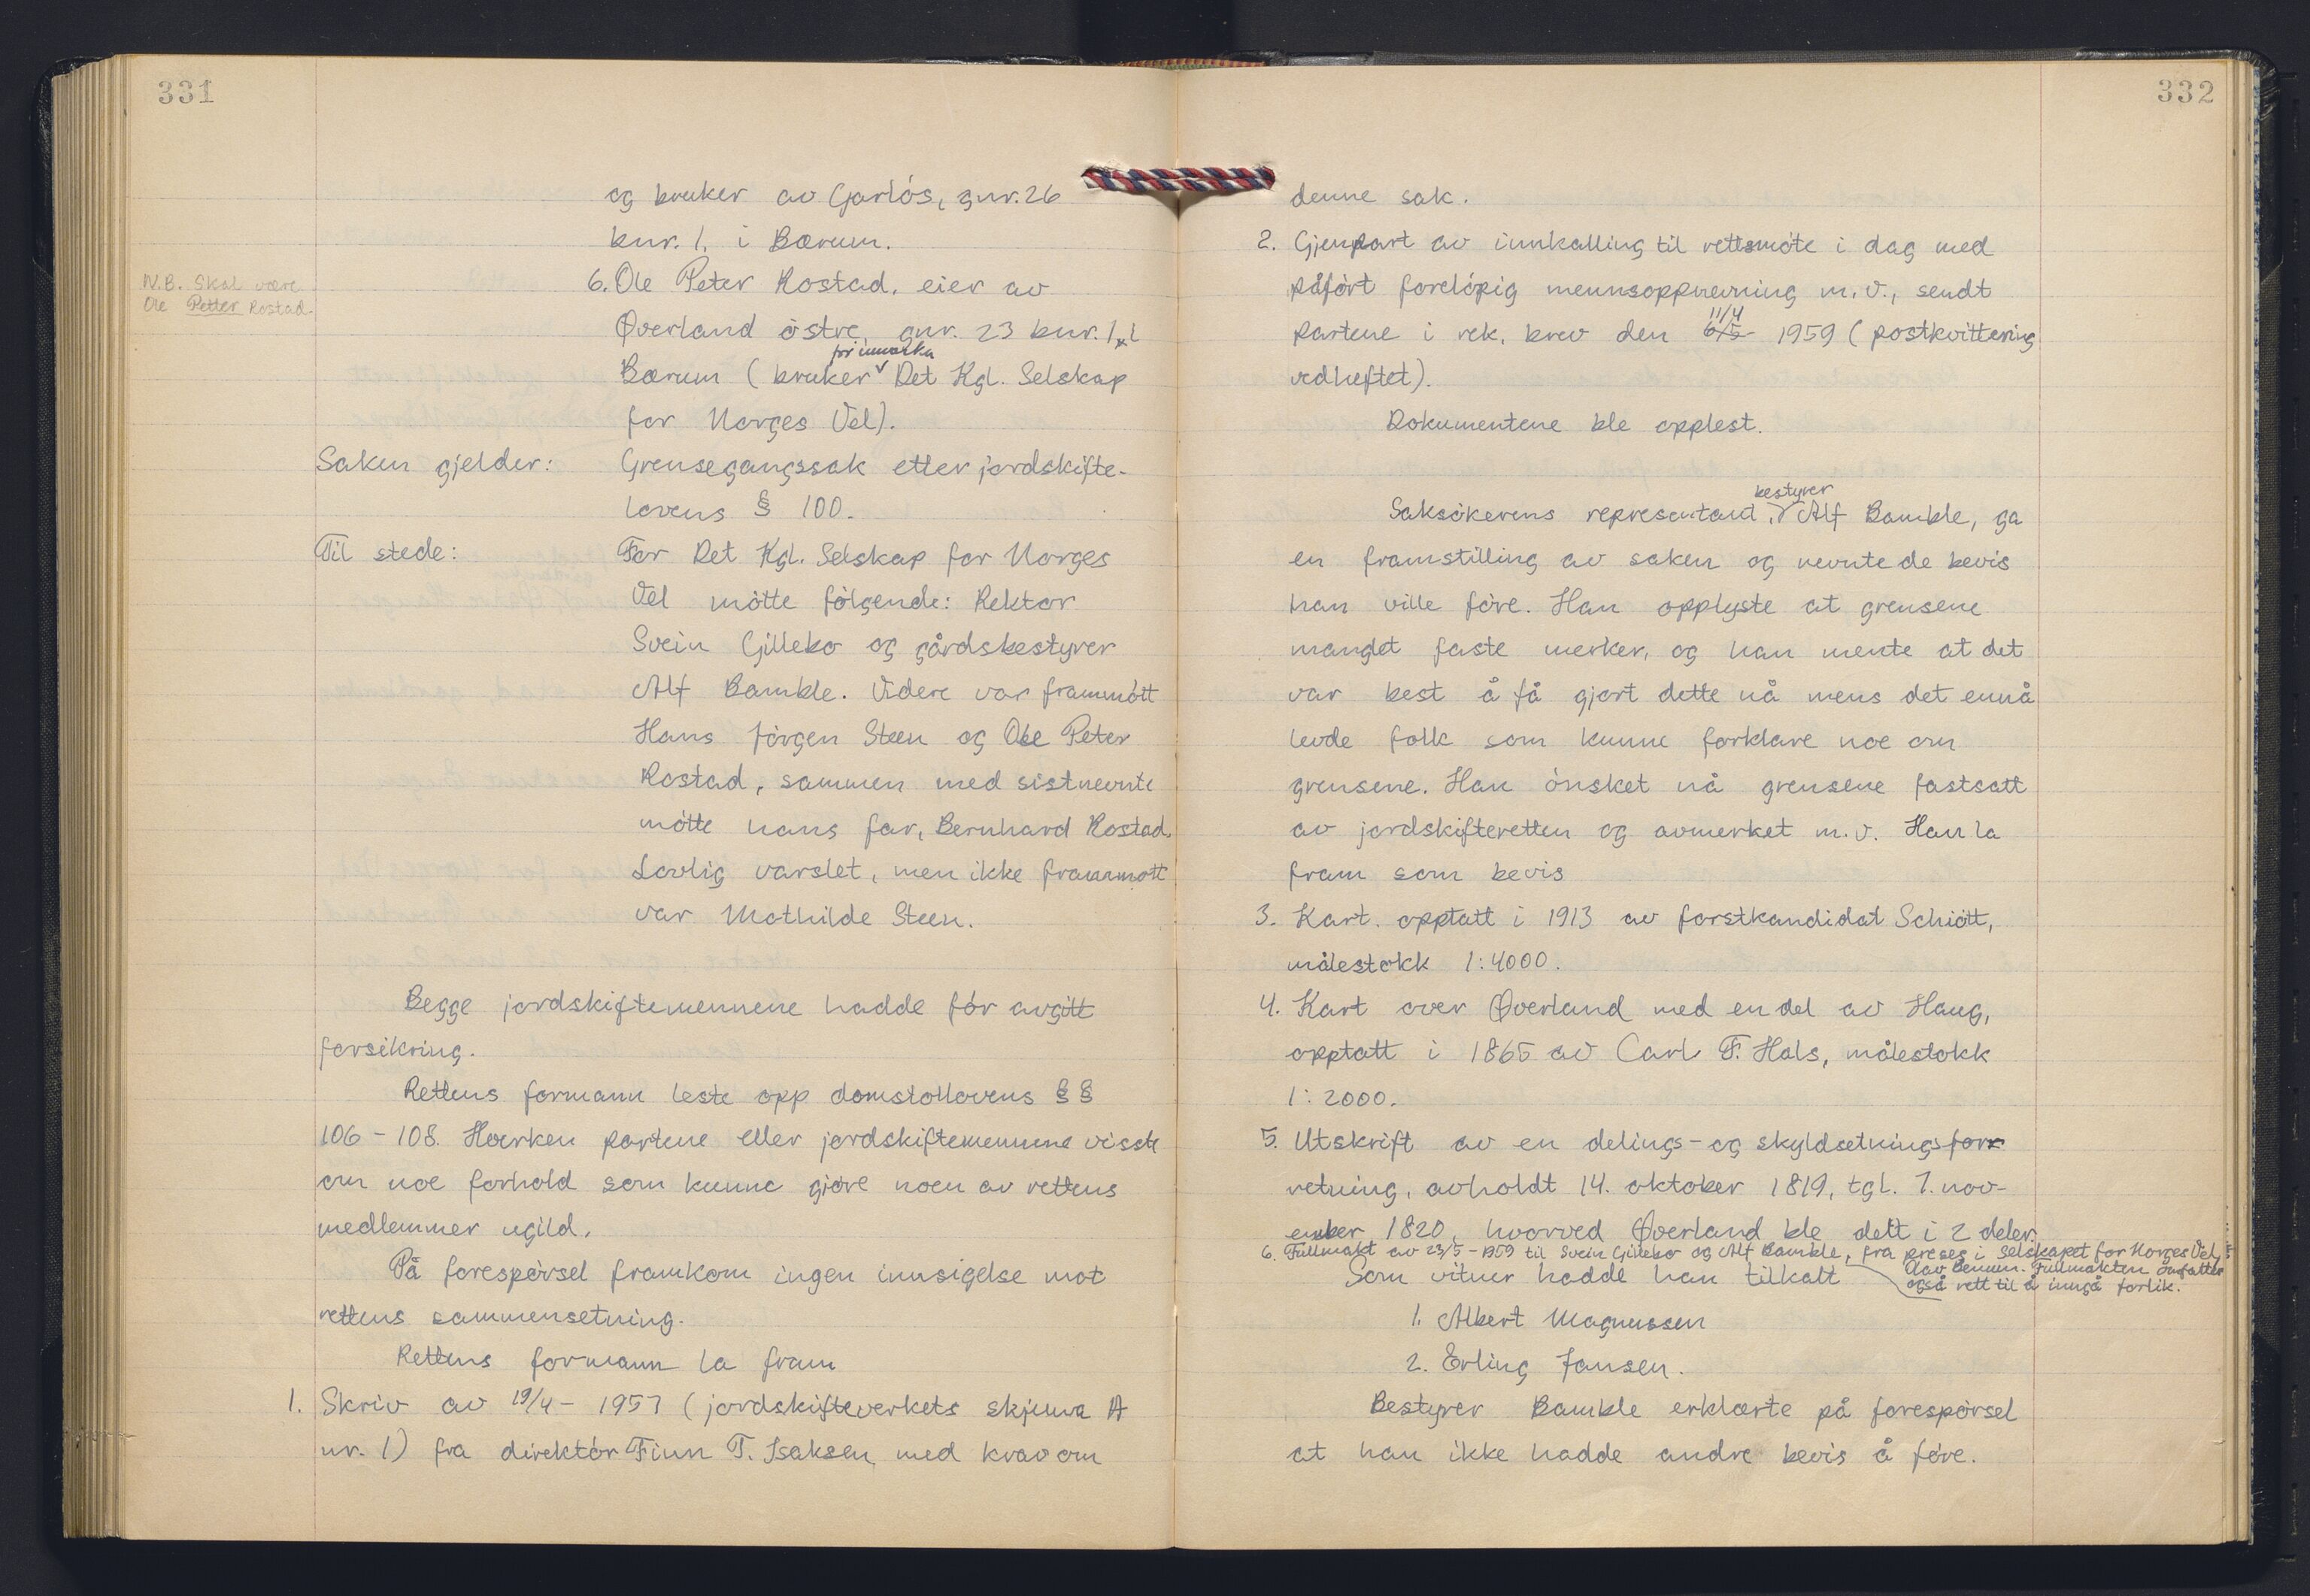 331
og bruker av Gjarlós, gnr. 26
bnr. 1, i Bærum.
N.B. Skal være
Ole Petter Rostad.
6. Ole Peter Rostad, eier av
Øverland östre, gnr. 23 bnr. 1, i
for innmarka
Bærum (bruker Det Kgl. Selskap
for Norges Vel).
Saken gjelder: Grensegangssak etter jordskifte-
lovens § 100.
Til stede: For Det Kgl. Selskap for Norges
Vel mötte fölgende: Rektor
Svein Gillebo og gårdsbestyrer
Alf Bamble. Videre var frammött
Hans Jörgen Steen og Ole Peter
Rostad, sammen med sistnevnte
mötte hans far, Bernhard Rostad.
Lovlig varslet, men ikke frammött
var Mathilde Steen.
Begge jordskiftemennene hadde för avgitt
forsikring.
Rettens formann leste opp domstollovens §§
106 - 108. Hverken partene eller jordskiftemennene visste
om noe forhold som kunne gjöre noen av rettens
medlemmer ugild.
På forespörsel framkom ingen innsigelse mot
rettens sammensetning.
Rettens formann la fram
1. Skriv av 19/4 - 1957 (jordskifteverkets skjema A
nr. 1) fra direktör Finn T. Isaksen med krav om
332
denne sak.
2. Gjenpart av innkalling til rettsmöte i dag med
påfört forelöpig mennsoppnevning m.v., sendt
11/4
partene i rek. brev den 6/5 1959 (postkvittering
vedheftet).
Dokumentene ble opplest.
bestyrer
Saksökerens representant, Alf Bamble, ga
en framstilling av saken og nevnte de bevis
han ville före. Han opplyste at grensene
manglet faste merker, og han mente at det
var best å få gjort dette nå mens det ennå
levde folk som kunne forklare noe om
grensene. Han önsket nå grensene fastsatt
av jordskifteretten og avmerket m.v. Han la
fram som bevis
3. Kart, opptatt i 1913 av forstkandidat Schiött,
målestokk 1:4000.
4. Kart over Øverland med en del av Haug,
opptatt i 1865 av Carl F. Hals, målestokk
1:2000.
5. Utskrift av en delings- og skyldsetningsfor-
retning, avholdt 14. oktober 1819, tgl. 7. nov-
ember 1820, hvorved Øverland ble delt i 2 deler.
6. Fullmakt av 23/5 - 1959 til Svein Gillebo og Alf Bamble, fra preses i Selskapet for Norges Vel,
Aav Bennum. Fullmakten omfatter
også rett til å inngå forlik.
Som vitner hadde han tilkalt
1. Albert Magnussen
2. Erling Jansen.
Bestyrer Bamble erklærte på forespörsel
at han ikke hadde andre bevis å före.